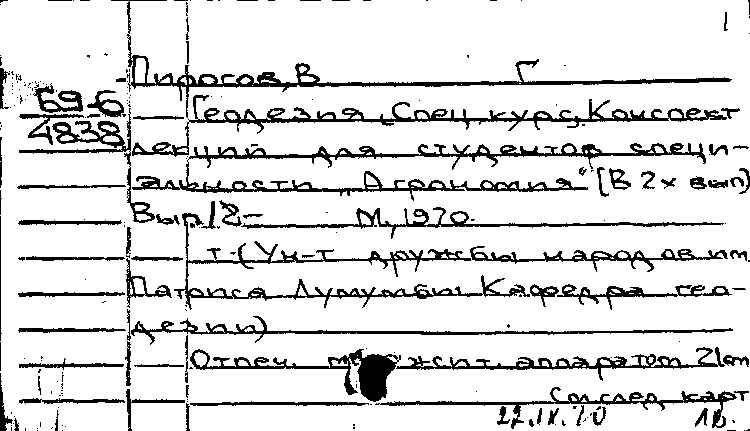 1
Пирогов, В Г
69-6 Геодезия „Спец. курс, Конспект
4838 лекций для студентов специ-
альности „Агрономия" [В 2х вып]
Вып 1/2- М, 1970.
т-(Ун-т дружбы народов им
Патриса Лумумбы Кафедра гео-
дезии)
Отпеч. множит. аппаратом 21см
См след карт
22.IX.70 1в.